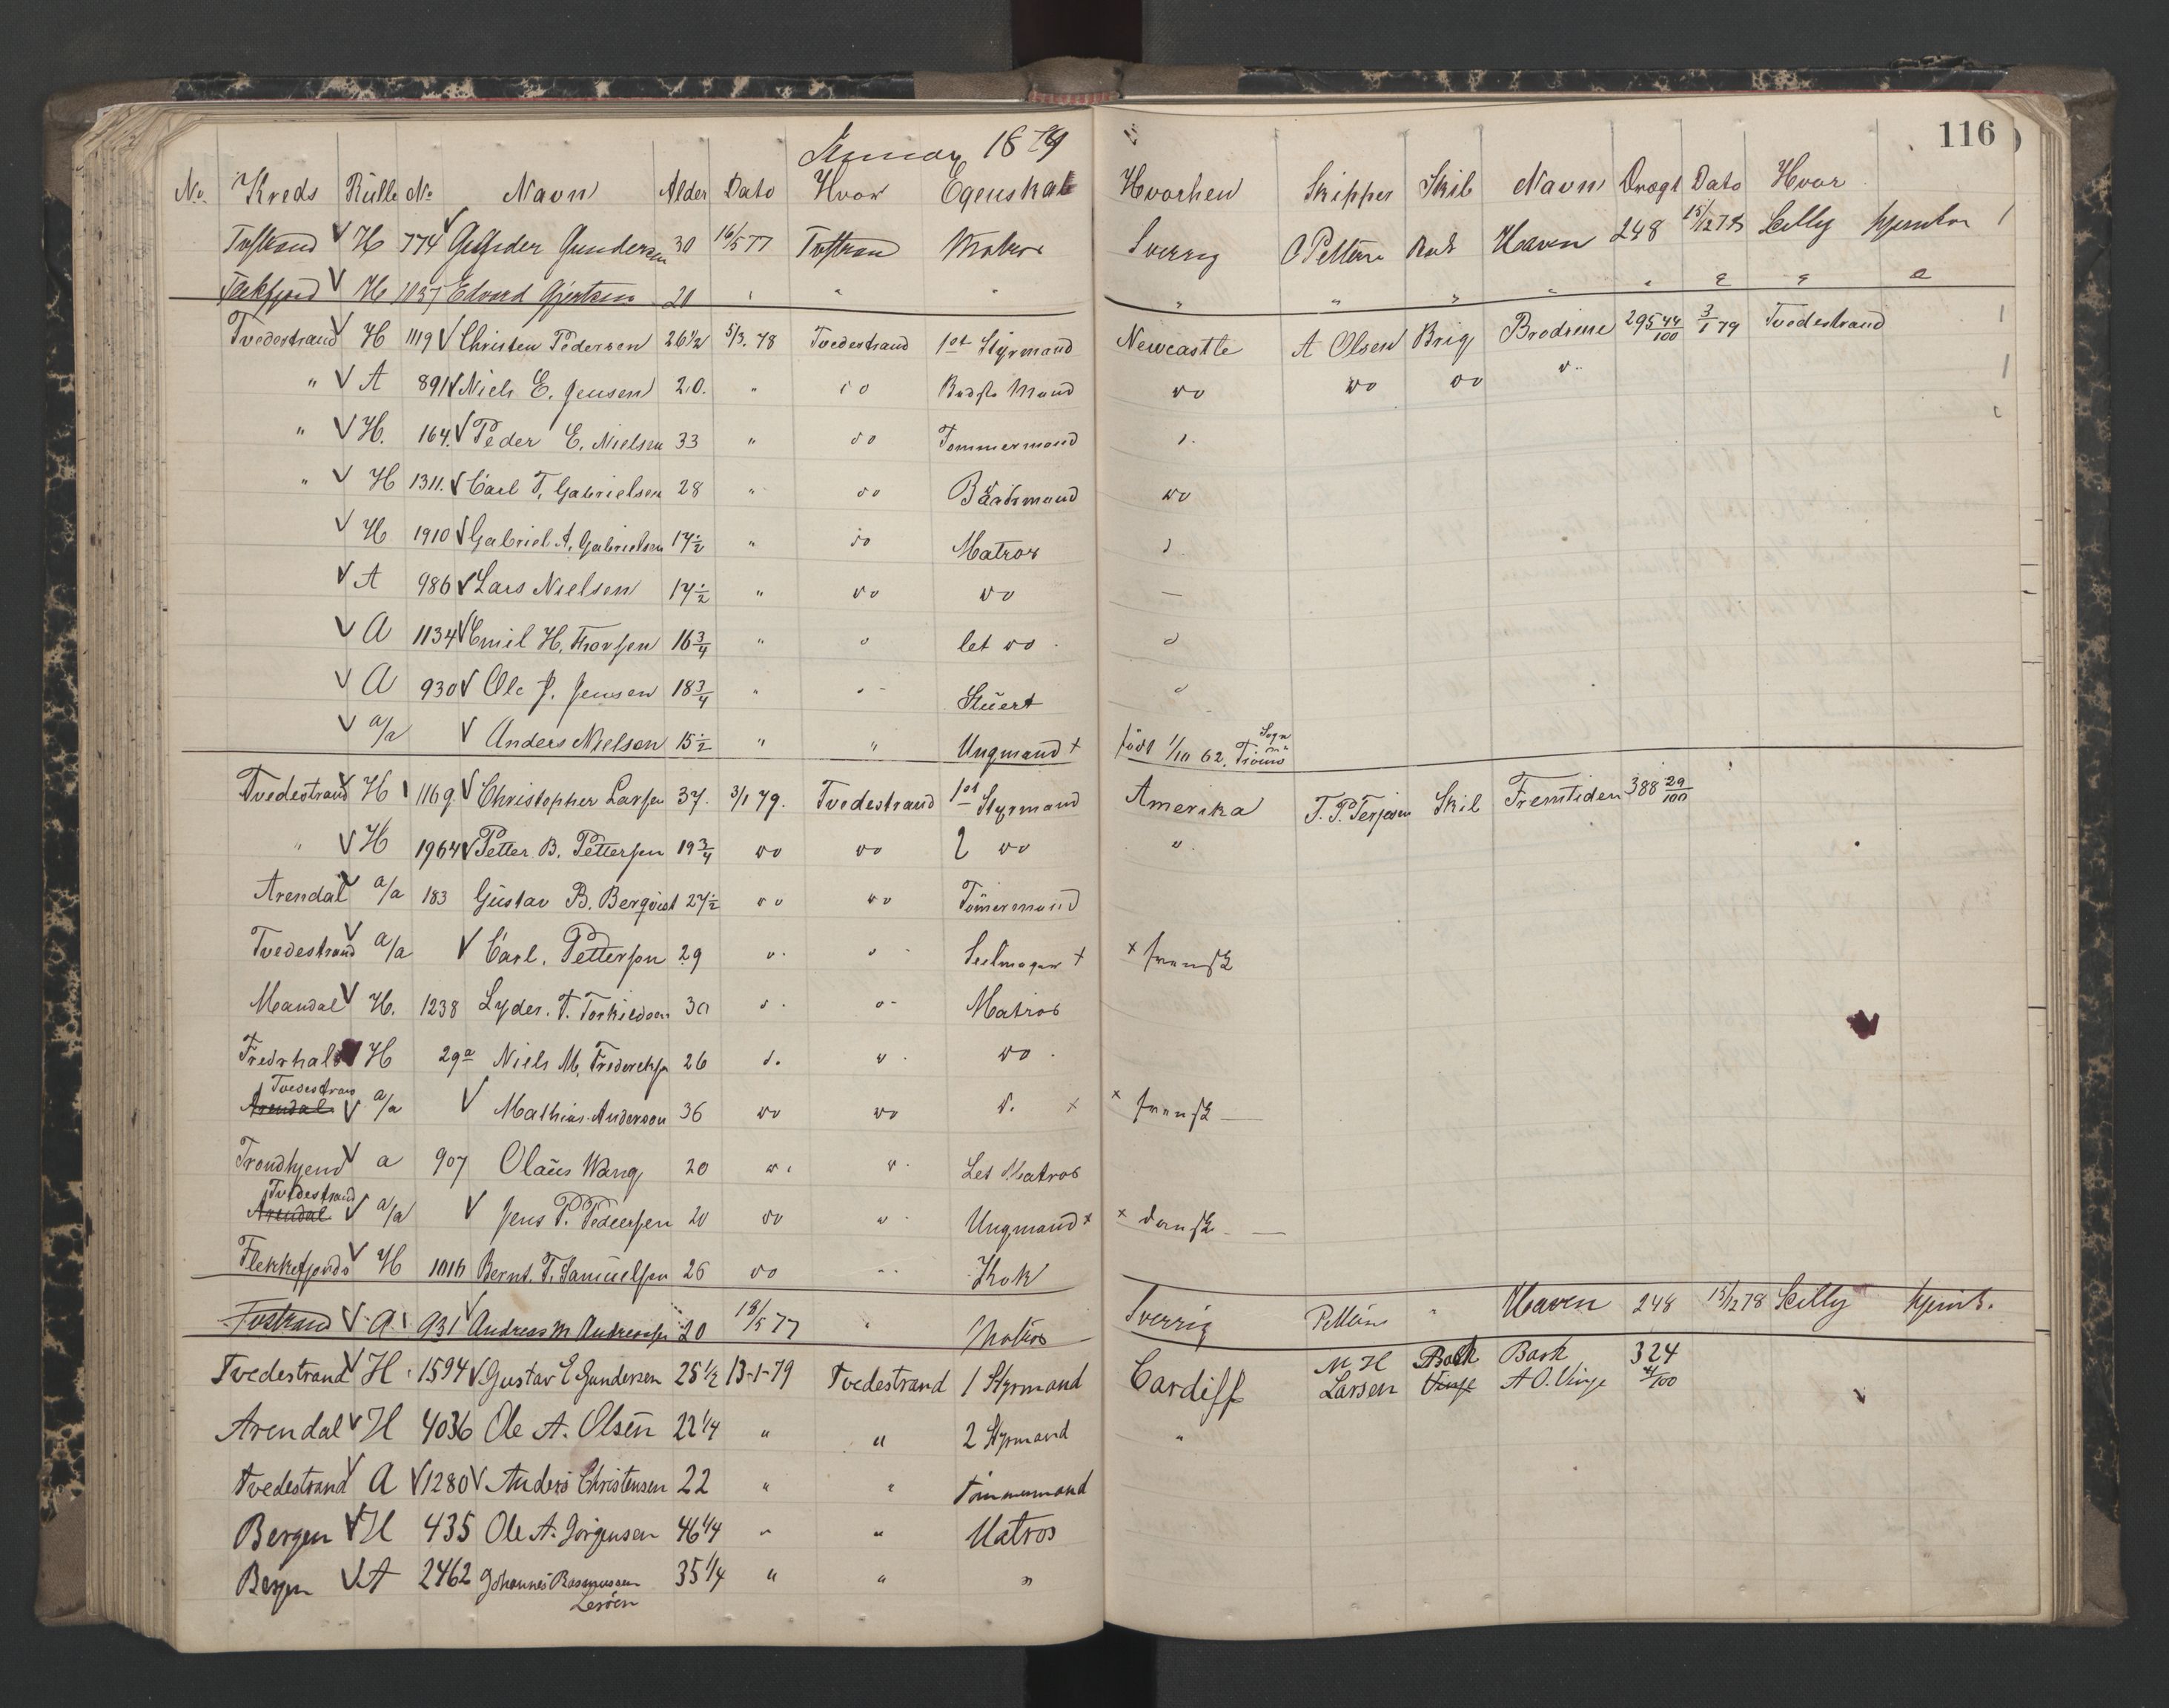 116
Januar 1879
No. Kreds Rulle No Navn Alder Dato Hvor Egenskab Hvorhen Skipper Skib Navn Drægt Dato Hvor
Tvstrand H 774 Gunder Gundersen 30 16/5 77 Tvstran Matros Sverrig Petters Havn 248 15/12 78 Scilly hjemkom
H 1037 Edvard Gjertsen 20 " " " " " " " "
Tvedestrand H 1119 Christen Pedersen 26 1/2 5/3. 78 Tvedestrand 1st Styrmand Newcastle A Olsen Brig Brodrene 295 44/100 3/1 79 Tvedestrand
" A 891 Niels E. Jensen 20. " do Bedste Mand do do do d..
" H. 164. Peder E. Nielsen 33 " do Tommermand d.
" H 1311. Carl T. Gabrielsen 28 " do Baadsmand do
H 1910 Gabriel A. Gabrielsen 17 1/2 " do Matros d.
A 986 Lars Nielsen 17 1/2 " do do —
A 1134 Emil H. Thorsen 16 3/4 " o let do
A 930 Ole J. Jensen 18 3/4 " Stuert
a/a Anders Nielsen 15 1/2 " " Ungmand + født 1/10 62. Tromø Sogn
Tvedestrand H 1169 Christopher Larsen 37. 3/1 79. Tvedestrand 1st Styrmand Amerika T. P. Terjesen Skib Fremtiden 388 29/100
" H 1964 Petter B. Pettersen 19 3/4 do do 2 do "
Arendal a/a 183 Gustav B. Berqvist 27 1/2 do do Tömermand
Tvedestrand a/a Carl. Petterson 29 d. d Seilmager + + svensk
Mandal H. 1238 Lyder. T. Torkildsen 30 d. d Matros
Fredrhald H 29a Niels M. Frederiksen 26 d. d. do.
Arendal Tvedestrand a/a Mathias Anderson 36 do do d. + + svensk —
Trondhjem a 907 Olaus Wang 20 d. d. Let Matros
Arendal Tvedestrand a/a Jens P. Pedersen 20 do d. Ungmand + + dansk —
Flekkefjords H 1016 Bernt. T. Samuelsen 26 do Kok
Tvstrand A. 931 Andreas M Andreassen 20 18/5 77 " Matros Sverrig Petters " Havn 248 15/12 78 Scilly hjemk.
Tvedestrand H 1594 Gustav E Gundersen 25 1/2 13-1-79 Tvedestrand 1 Styrmand Cardiff M H Larsen Bark Vinje Bark A O. Vinje 324 /100
Arendal H 4036 Ole A. Olsen 22 1/4 " " 2 Styrmand "
Tvedestrand A 1280 Anders Christensen 22 " " Tömmermand
Bergen H 435 Ole A. Jörgensen 46 1/4 " " Matros
Bergen A 2462 Johannes Rasmussen Leröen 35 1/4 " " "